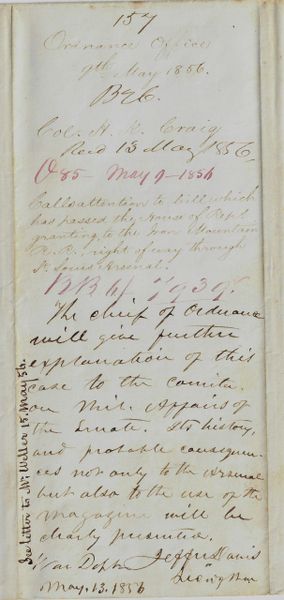 157
Ordnance Office
9th May 1856.
B & C.
Col. H. K. Craig
Recd 13 May 1856.
O 85 - May 9 - 1856
Calls attention to bill which
has passed the House of Rept.
granting to the Iron Mountain
R.R. right of way through
St. Louis Arsenal.
The chief of Ordnance
will give further
explanation of this
case to the comtte.
on Mil. Affairs of
the Senate. Its history,
and probable consequen-
ces not only to the Arsenal
but also to the use of the
magazine will be
clearly presented.
Jeffn Davis
War Dept
Secy of War
May. 13. 1856
See letter to Mr Weller 15. May 56.